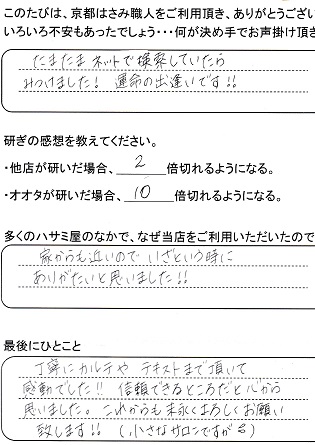 このたびは、京都はさみ職人をご利用頂き、ありがとうござい
いろいろ不安もあったでしょう・・・何が決め手でお声掛け頂き
たまたまネットで検索していたら
みつけました！運命の出逢いです!!
研ぎの感想を教えてください。
・他店が研いだ場合、 2 倍切れるようになる。
・オオタが研いだ場合、 10 倍切れるようになる。
多くのハサミ屋のなかで、なぜ当店をご利用いただいたので
家からも近いので いざという時に
ありがたいと思いました!!
最後にひとこと
丁寧にカルテや テキストまで頂いて
感動でした!! 信頼できるところだと心から
思いました。これからも末永くよろしくお願い
致します!! (小さなサロンですが